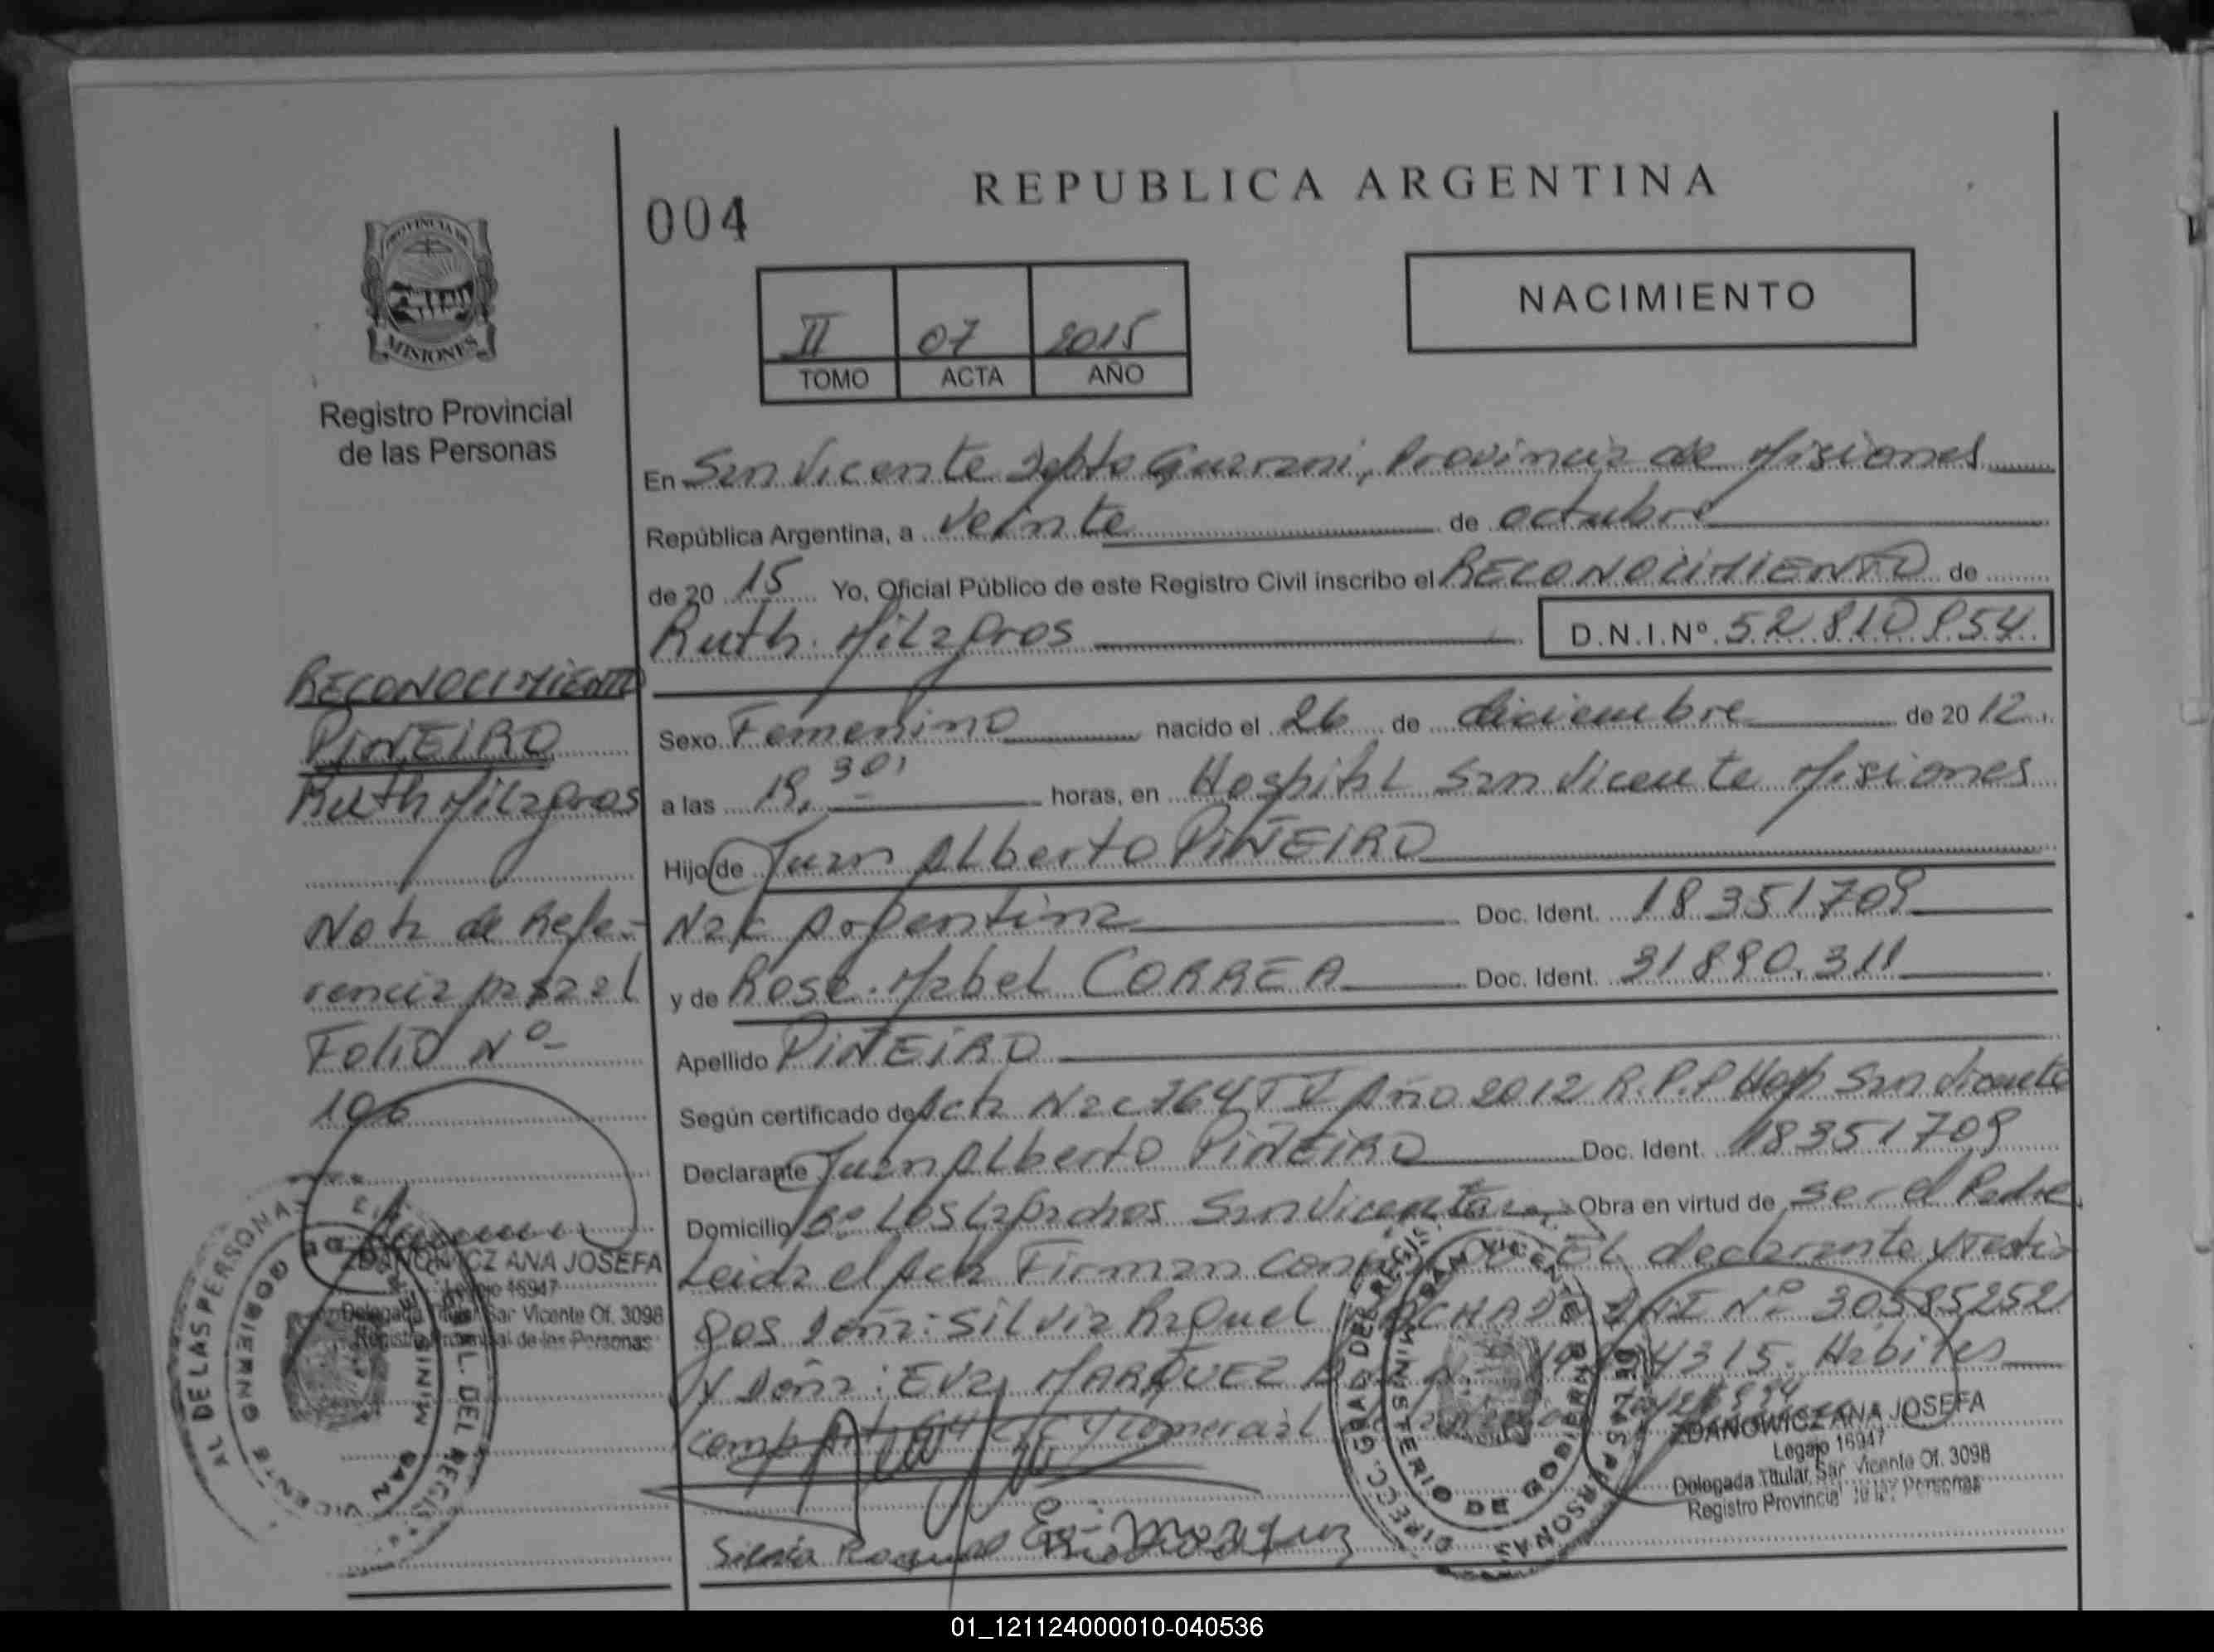 REPUBLICA ARGENTINA
004
NACIMIENTO
II 07 2015
TOMO ACTA AÑO
PROVINCIA DE
MISIONES
Registro Provincial
de las Personas
En San Vicente Dpto Guarani, Provincia de Misiones
República Argentina, a veinte de octubre
de 20 15 Yo, Oficial Público de este Registro Civil inscribo el RECONOCIMIENTO de
Ruth Milagros D.N.I.Nº 52 810 854
Sexo Femenino nacido el 26 de diciembre de 20 12
a las 19,30 horas, en Hospital San Vicente Misiones
Hijo de Juan Alberto PIÑEIRO
Nac Argentina Doc. Ident. 18351709
y de Rosa Mabel CORREA Doc. Ident. 31890.311
Apellido PIÑEIRO
Según certificado de Acta Nac 764 Año 2012 R.P.P Hosp San Vicente
Declarante Juan Alberto PIÑEIRO Doc. Ident. 18351709
Domicilio Bº Los Lapachos San Vicente Obra en virtud de ser el Padre
Leida el Acta Firman El declarante y Testi-
gos Doña: Silvia Raquel DNI Nº 30585252
y Doña: Eva MARQUEZ 4315. Habiles
Comercial
Silvia Raquel Eva Marquez
ZDANOWICZ ANA JOSEFA
Legajo 16947
Delegada Titular San Vicente Of. 3098
Registro Provincial de las Personas
RECONOCIMIENTO
PIÑEIRO
Ruth Milagros
Nota de Refe-
rencia pasa al
Folio Nº
106
ZDANOWICZ ANA JOSEFA
Legajo 16947
Delegada Titular San Vicente Of. 3098
Registro Provincial de las Personas
01_121124000010-040536